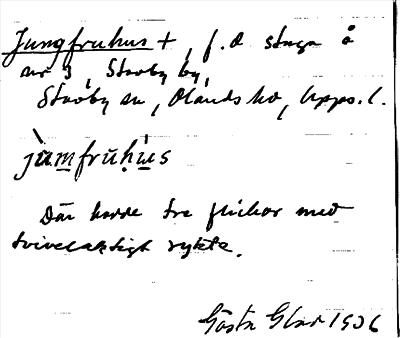 Jungfruhus +, f.d stuga å
nr 3, Stavby by,
Stavby sn, Olands hd, Upps. l.
jùmfrūḥùs
Där hade tre flickor med
tvivelaktigt rykte.
Gösta Glad 1906